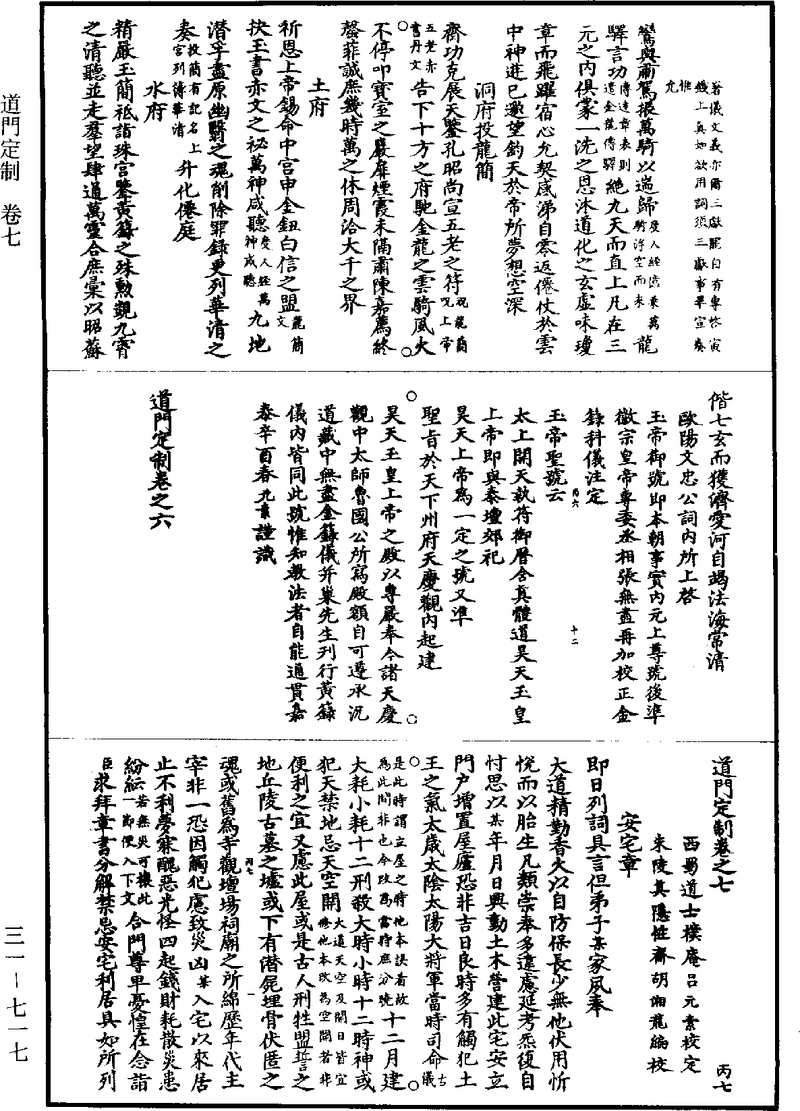 道門定制　卷七
三一—七一七
若儀文義亦爾三獻罷自有專俻寅
錢上真如欲用詞須三獻事畢宣奏
惟允
鸞輿肅駕振萬騎以遄歸度人經浩乘萬騎浮空而來龍
驛言功傳達章表則遣金龍傳驛絶九天而直上凡在三
元之内俱蒙一洗之恩沐道化之玄虛味瓊
章而飛躍宿心允契感涕自零返僊仗於雲
中神遊已邈望鈞天於帝所夢想空深
洞府投龍簡
齋功克展天鑒孔昭尚宣五老之符祝龍簡呪上帝五老赤書丹文告下十方之府馳金龍之雲騎風火
不停叩寶室之嚴扉煙霞未隔肅陳嘉薦終
罄菲誠庶幾時萬之休周洽大千之界
土府
祈恩上帝錫命中宫申金鈕白信之盟龍簡文
抉玉書赤文之祕萬神咸聽度人經萬神咸聽九地
潛孚盡原幽翳之魂削除罪錄更列華清之
奏投簡有記名上宫列儔華清升化僊庭
水府
精嚴玉簡祗詣珠宫鑒黄籙之殊勲觀九霄
之清聽並走羣望肆通萬靈合庶彙以昭蘇
偕七玄而獲濟愛河自竭法海常清
歐陽文忠公詞内所上啓
玉帝御號即本朝事實内元上尊號後準
徽宗皇帝尊委丞相張無盡再加校正金
籙科儀注定
玉帝聖號云
丙六
十二
太上開天執符御曆含真體道昊天玉皇
上帝即與泰壇郊祀
昊天上帝為一定之號又準
聖旨於天下州府天慶觀内起建
昊天玉皇上帝之殿以專嚴奉今諸天慶
觀中太師魯國公所寫殿額自可遵承況
道藏中無盡金籙儀并巢先生列行黄籙
儀内皆同此號惟知教法者自能通貫嘉
泰辛酉春九素謹識
道門定制卷之六
道門定制卷之七
丙七
西蜀道士樸庵吕元素校定
朱陵真隱性齋胡湘龍編校
安宅章
即日列詞具言但弟子某家夙奉
大道精勤香火以自防保長少無他伏用忻
悦而以胎生凡類崇奉多違慮延考炁復自
忖思以某年月日興動土木營建此宅安立
門户增置屋廬恐非吉日良時多有觸犯土
王之氣太歲太陰太陽大將軍當時司命古儀
是此時謂立屋之時他本誤者故為此間非也今改為當時庶分曉十二月建
大耗小耗十二刑殺大時小時十二時神或
犯天禁地忌天空開大道天空及開日皆宜修他本改為空開者非
便利之宜又慮此屋或是古人刑牲盟誓之
地丘陵古墓之墟或下有潛屍埋骨伏匿之
丙七
一
魂或舊為寺觀壇場祠廟之所綿歷年代主
宰非一恐因觸犯應致災凶某入宅以來居
止不利夢寐醜惡光怪四起錢財耗散災患
紛紜若無災可攘此一節便入下文合門尊卑憂惶在念詣
臣求拜章書分解禁忌安宅利居具如所列